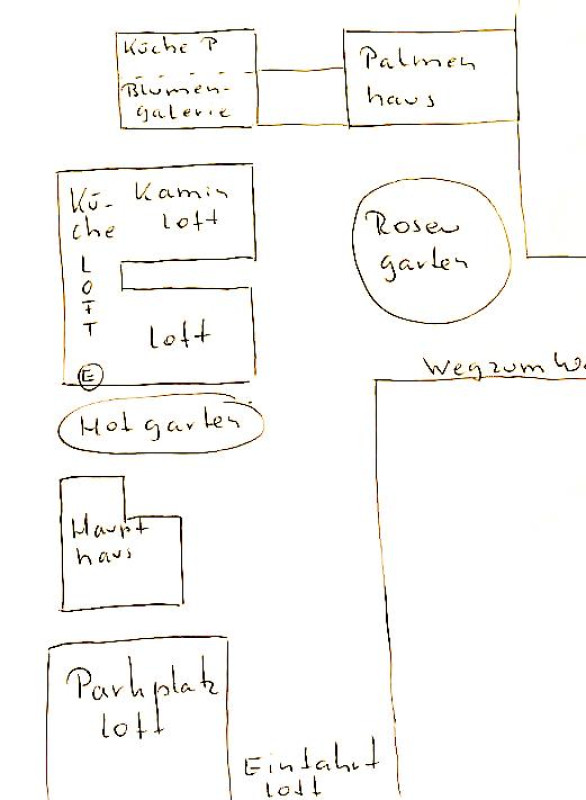 Küche P
Blumen-
galerie
Palmen
haus
Kü-
che
Kamin
loft
L
O
F
T
Loft
E
Rosen
garten
Weg zum Wa
Hofgarten
Haupt
haus
Parkplatz
loft
Einfahrt
loft